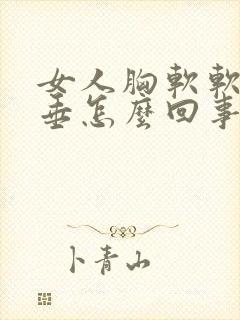 女人胸軟軟
垂怎麼回事
卜青山